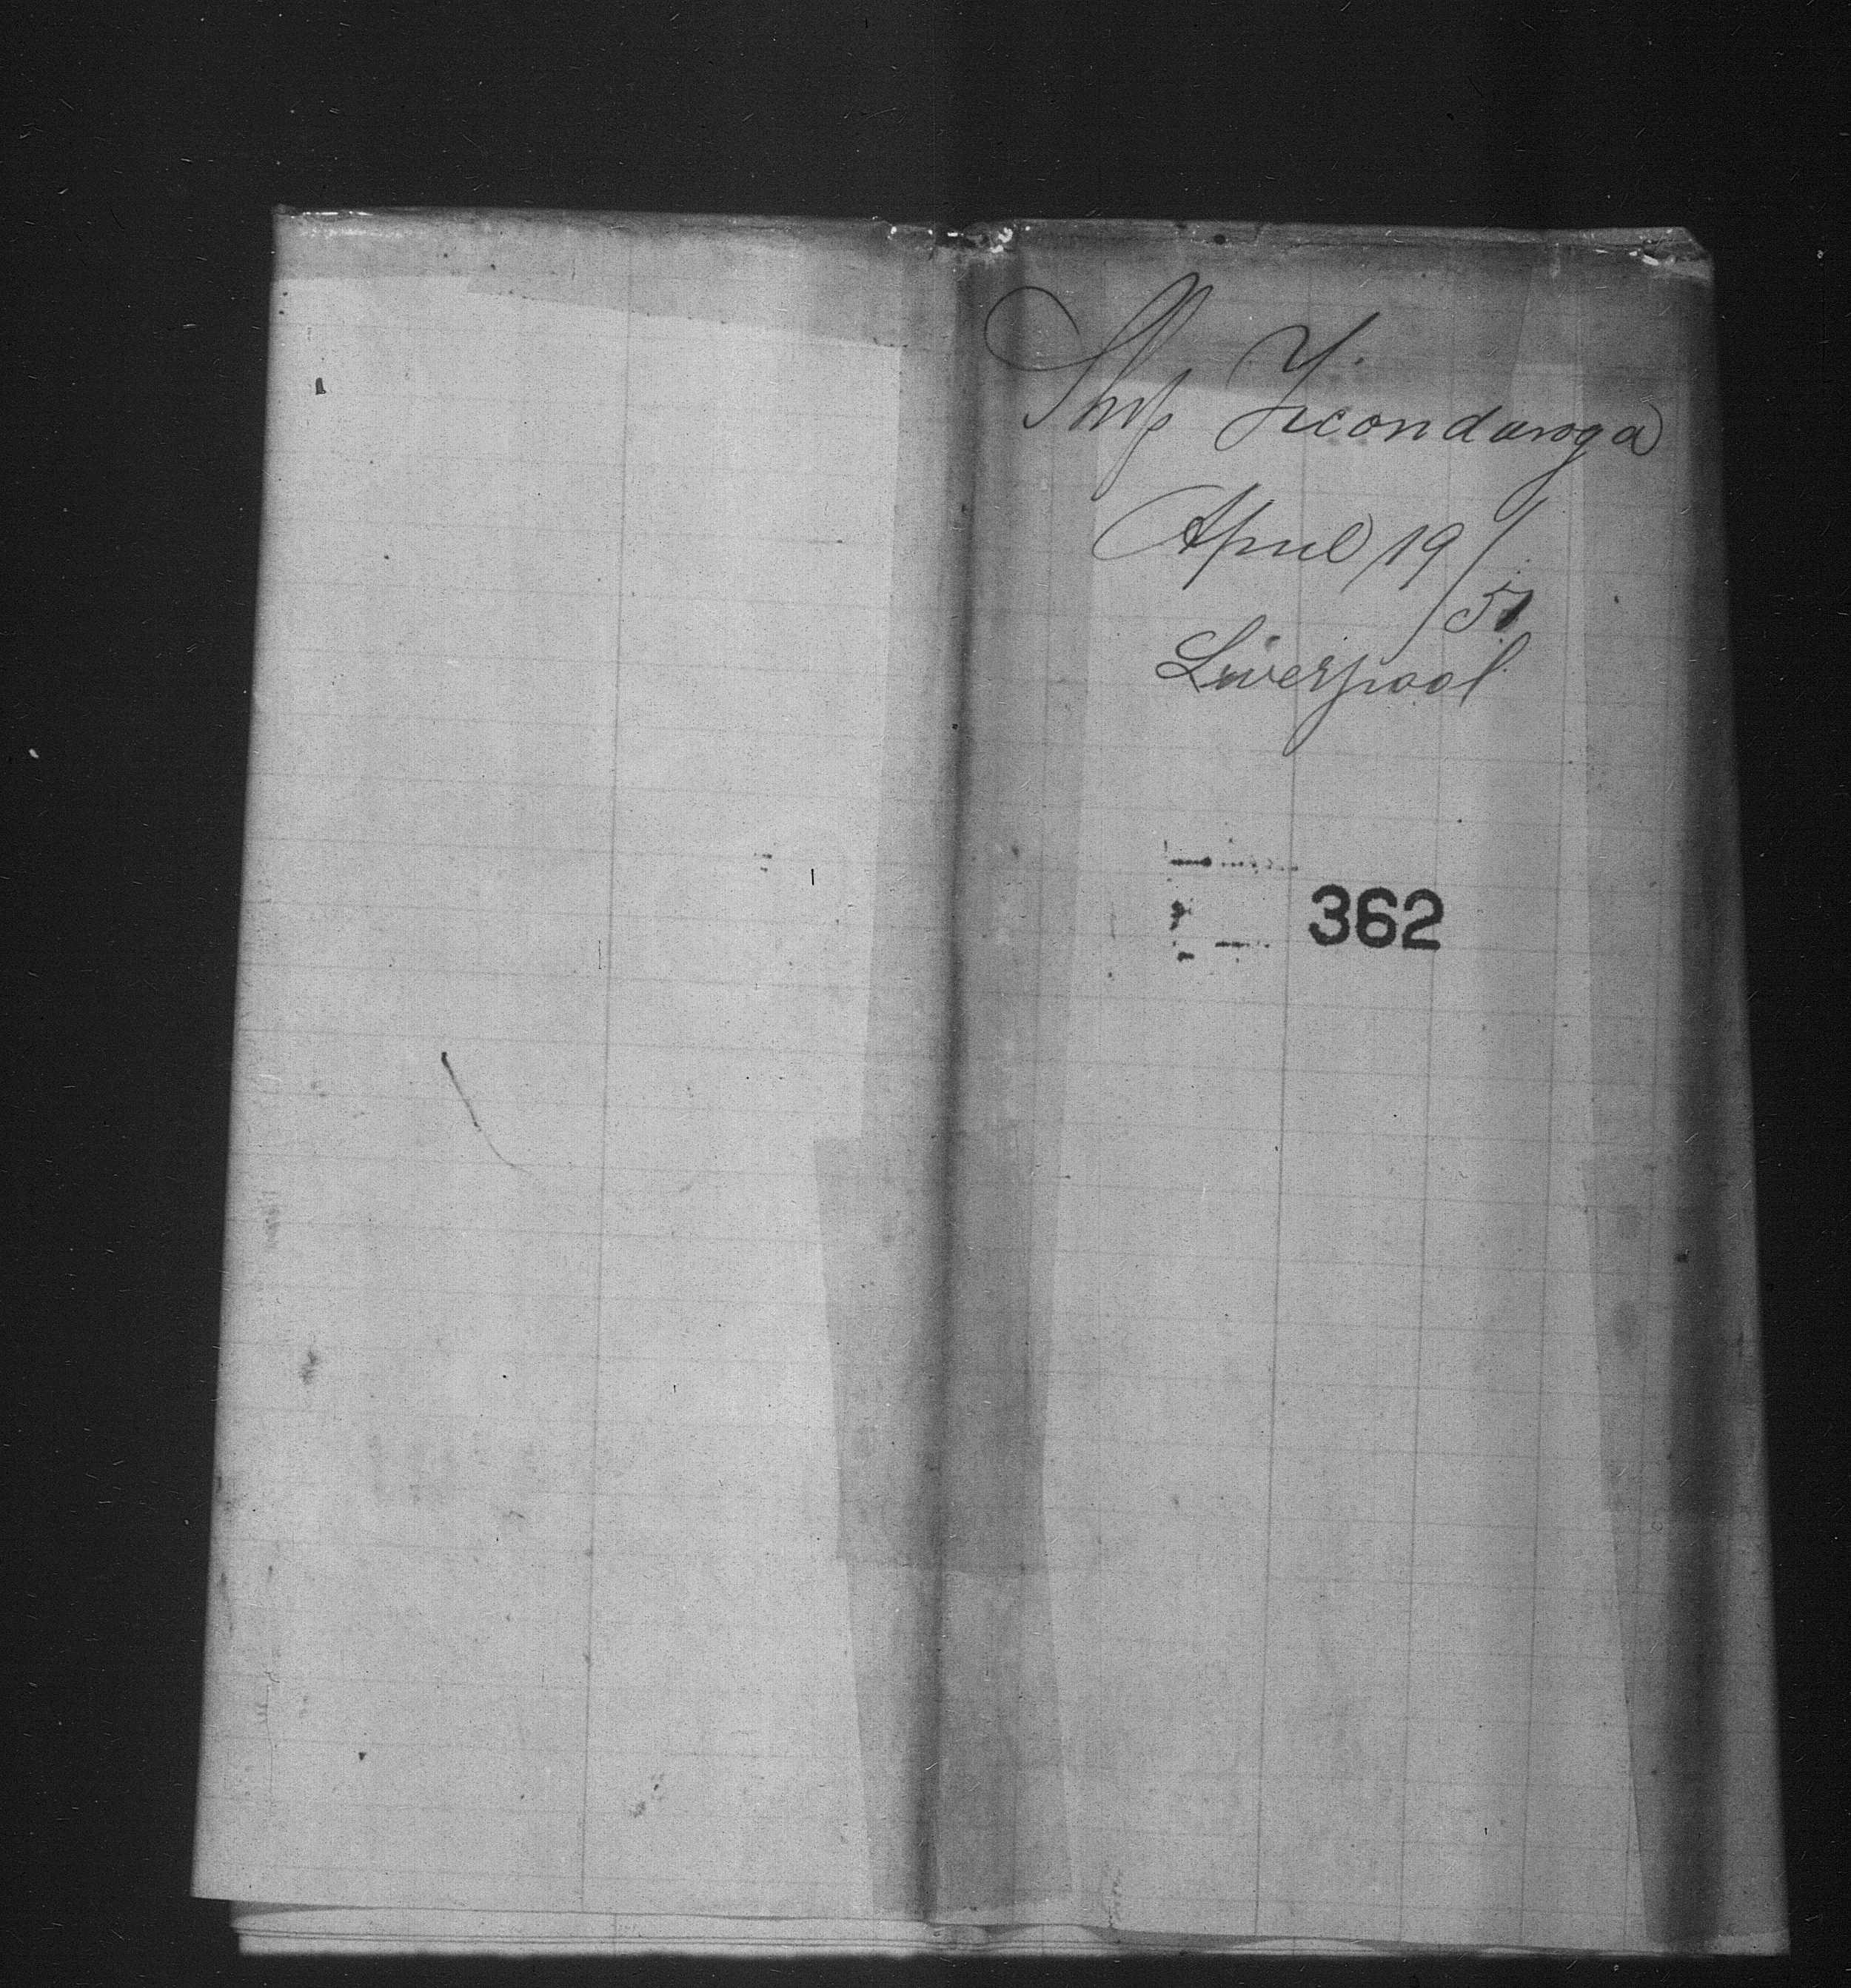 Ship Ticondaroga
April 19/51
Liverpool
362